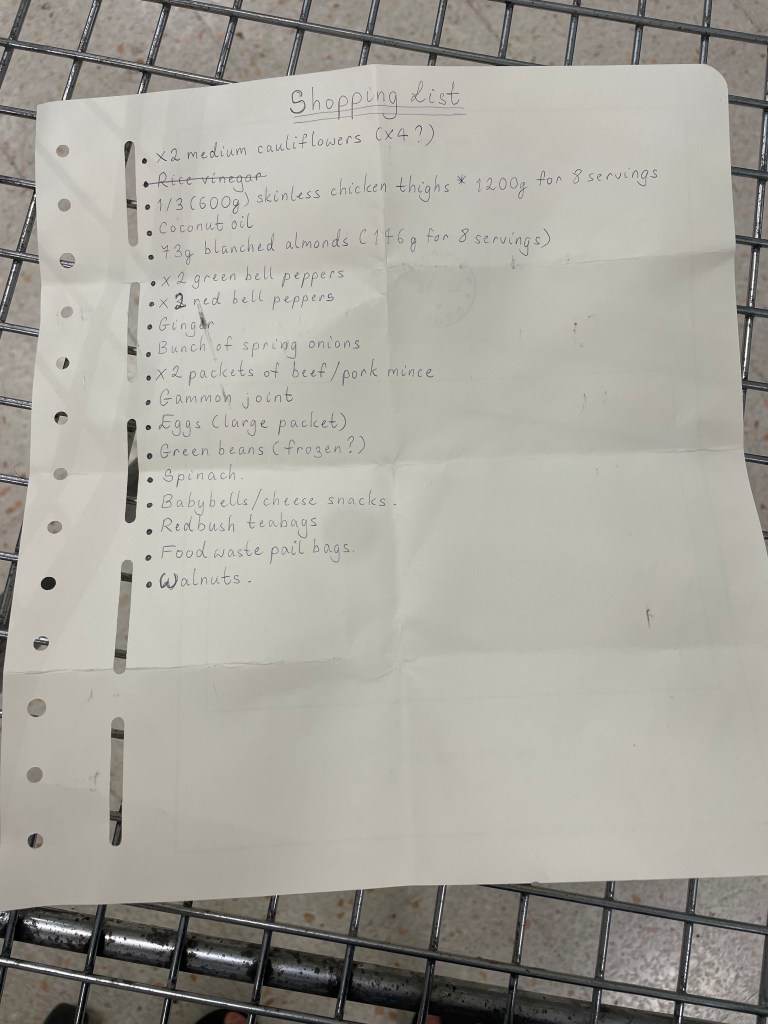 Shopping List
• x2 medium cauliflowers (x4?)
• Rice vinegar
• 1/3 (600g) skinless chicken thighs * 1200g for 8 servings
• Coconut oil
• 73g blanched almonds (146g for 8 servings)
• x2 green bell peppers
• x2 red bell peppers
• Ginger
• Bunch of spring onions
• x2 packets of beef/pork mince
• Gammon joint
• Eggs (large packet)
• Green beans (frozen?)
• Spinach.
• Babybells/cheese snacks.
• Redbush teabags
• Food waste pail bags.
• Walnuts.